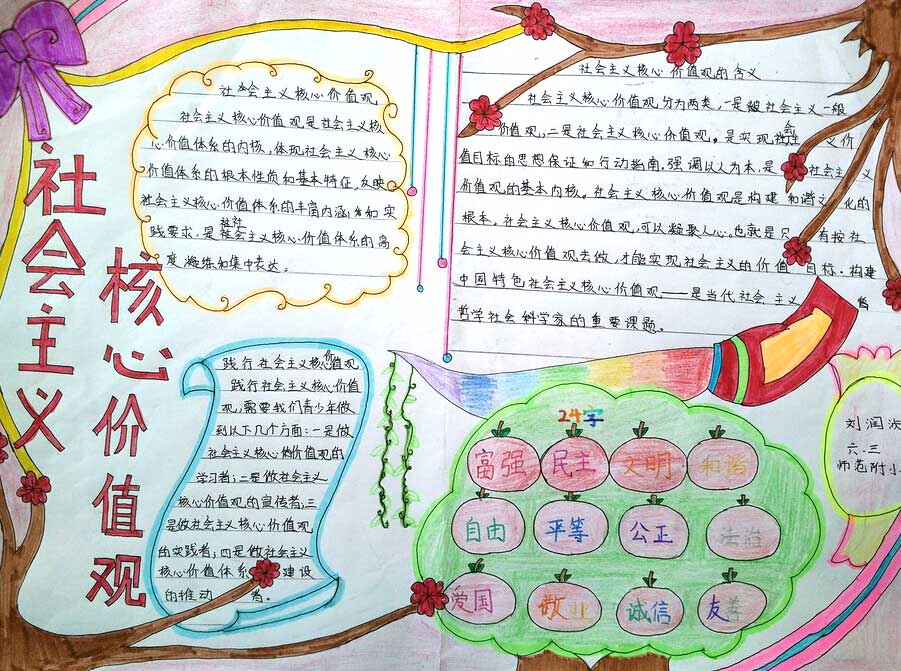 社会主义
核心价值观
社会主义核心价值观
社会主义核心价值观是社会主义核
心价值体系的内核,体现社会主义核心
价值体系的根本性质和基本特征,反映
社会主义核心价值体系的丰富内涵和实
践要求,是社会主义核心价值体系的高
度凝练和集中表达。
社会主义核心价值观的含义
社会主义核心价值观分为两类,一是被社会主义一般
价值观,二是社会主义核心价值观。是实现社会主义价
值目标的思想保证和行动指南,强调以人为本,是社会主义
价值观的基本内核。社会主义核心价值观是构建和谐文化的
根本。社会主义核心价值观,可以凝聚人心。也就是只有按社
会主义核心价值观去做,才能实现社会主义的价值目标。构建
中国特色社会主义核心价值观——是当代社会主义
哲学社会科学家的重要课题。
践行社会主义核心价值观
践行社会主义核心价值
观,需要我们青少年做
到以下几个方面:一是做
社会主义核心价值观的
学习者;二是做社会主义
核心价值观的宣传者;三
是做社会主义核心价值观
的实践者;四是做社会主义
核心价值体系建设
的推动者。
24字
富强 民主 文明 和谐
自由 平等 公正 法治
爱国 敬业 诚信 友善
刘润
六.三
师范附小